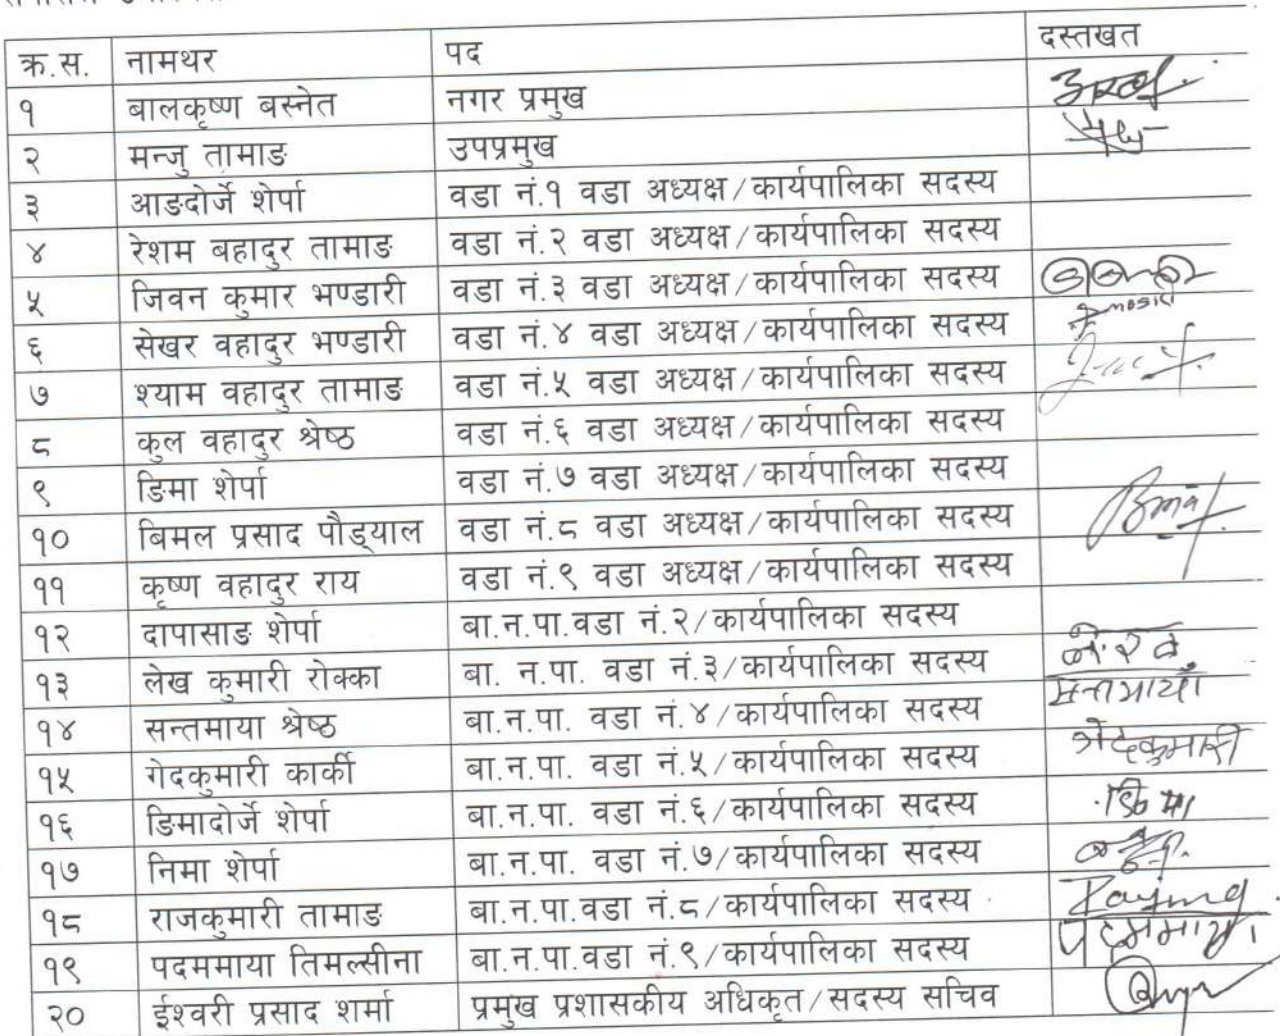 क्र.स. नामथर पद दस्तखत
१ बालकृष्ण बस्नेत नगर प्रमुख
२ मन्जु तामाङ उपप्रमुख
३ आङदोर्जे शेर्पा वडा नं.१ वडा अध्यक्ष/कार्यपालिका सदस्य
४ रेशम बहादुर तामाङ वडा नं.२ वडा अध्यक्ष/कार्यपालिका सदस्य
५ जिवन कुमार भण्डारी वडा नं.३ वडा अध्यक्ष/कार्यपालिका सदस्य
६ सेखर वहादुर भण्डारी वडा नं.४ वडा अध्यक्ष/कार्यपालिका सदस्य
७ श्याम वहादुर तामाङ वडा नं.५ वडा अध्यक्ष/कार्यपालिका सदस्य
८ कुल वहादुर श्रेष्ठ वडा नं.६ वडा अध्यक्ष/कार्यपालिका सदस्य
९ ङिमा शेर्पा वडा नं.७ वडा अध्यक्ष/कार्यपालिका सदस्य
१० बिमल प्रसाद पौड्याल वडा नं.८ वडा अध्यक्ष/कार्यपालिका सदस्य
११ कृष्ण वहादुर राय वडा नं.९ वडा अध्यक्ष/कार्यपालिका सदस्य
१२ दापासाङ शेर्पा बा.न.पा.वडा नं.२/कार्यपालिका सदस्य
१३ लेख कुमारी रोक्का बा. न.पा. वडा नं.३/कार्यपालिका सदस्य
१४ सन्तमाया श्रेष्ठ बा.न.पा. वडा नं.४/कार्यपालिका सदस्य सन्तमाया
१५ गेदकुमारी कार्की बा.न.पा. वडा नं.५/कार्यपालिका सदस्य गेदकुमारी
१६ ङिमादोर्जे शेर्पा बा.न.पा. वडा नं.६/कार्यपालिका सदस्य ङिमा
१७ निमा शेर्पा बा.न.पा. वडा नं.७/कार्यपालिका सदस्य
१८ राजकुमारी तामाङ बा.न.पा.वडा नं.८/कार्यपालिका सदस्य
१९ पदममाया तिमल्सीना बा.न.पा.वडा नं.९/कार्यपालिका सदस्य पदममाया
२० ईश्वरी प्रसाद शर्मा प्रमुख प्रशासकीय अधिकृत/सदस्य सचिव